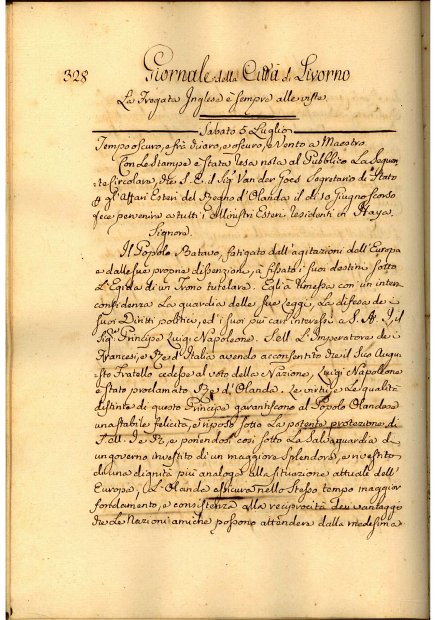 328 Giornale della Città di Livorno
La Fregata Inglese è sempre alle viste
Sabato 5 Luglio
Tempo oscuro, e frà diaro, e oscuro, e Vento a Maestro
Con Le Stampe è stata resa nota al Pubblico La Seguen
te Circolare, che S. E. il Sigr Van der Goes Segretario di Stato
gl' Affari Esteri del Regno d'Olanda il dì 10 Giugno scorso
fece pervenire a tutti i Ministri Esteri residenti in Haya.
Signore.
Il Popolo Batavo, fatigato dall'agitazioni dell'Europa
e dalle sue proprie dissenzione, à fissato i suoi destini sotto
L'Egida di un Trono tutelare. Egli à rimessa con un'intera
confidenza La guardia delle sue Leggi, La difesa de i
suoi Diritti politici, ed i suoi più cari interessi a S. A. I. il
Sigr Principe Luigi Napoleone. Sell L'Imperatore de i
Francesi, e Re d'Italia avendo acconsentito che il suo Augu
sto Fratello cedesse al voto della Nazione, Luigi Napoleone
è stato proclamato Re d'Olanda. Le virtù, e Le qualità
distinte di questo Principe garantiscono al Popolo Olandese
una stabile felicità, e riposo sotto La potente protezione di
e ponendosi così sotto La Salvaguardia di
un governo investito di un maggiore splendore, e rivestito
di una dignità più analoga alla situazione attuale dell'
Europa, L'Olanda assicura nello stesso tempo maggior
fondamento, e consistenza alla reciprocità dei vantaggi
che Le Nazioni amiche possono attendere dalla medesima